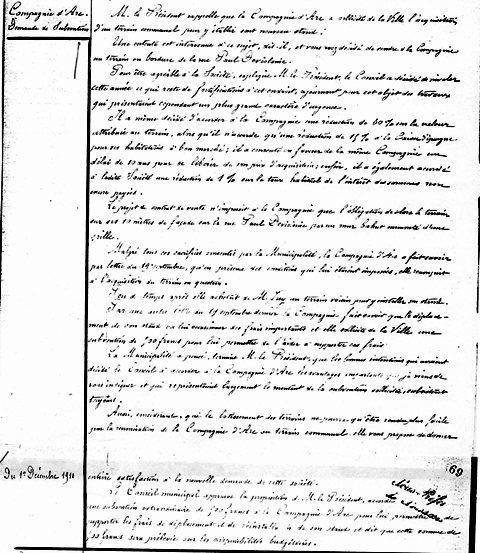 Compagnie d'Arc.
Demande de Subvention
M. le Président rappelle que la Compagnie d'Arc a sollicité de la Ville l'acquisition
d'un terrain communal pour y établir son nouveau stand ;
Une entente est intervenue à ce sujet, dit-il, et vous avez décidé de vendre à la Compagnie
un terrain en bordure de la rue Paul
Pour être agréable à la Société, explique M. le Président, le Conseil a décidé de
cette année ce qui reste de fortifications à cet endroit, ajournant pour cet objet des travaux
qui présentaient cependant un plus grand caractère d'urgence.
Il a même décidé d'accorder à la Compagnie une réduction de 30 % sur la valeur
attribuée au terrain, alors qu'il n'accorde qu'une réduction de 15 % à la Caisse d'épargne
pour ses habitations à bon marché ; il a consenti en faveur de la même Compagnie un
délai de 10 ans pour se libérer de son prix d'acquisition ; enfin, il a également accordé
à ladite Société une réduction de 1 % sur le taux habituel de l'intérêt des sommes non
encore payées.
Le projet de contrat de vente n'imposait à la Compagnie que l'obligation de clore le terrain
sur ses 10 mètres de façade sur la rue Paul par un mur bahut surmonté d'une
grille.
Malgré tous ces sacrifices consentis par la Municipalité, la Compagnie d'Arc a fait savoir
par lettre du 19 septembre, qu'en présence des conditions qui lui étaient imposées, elle renonçait
à l'acquisition du terrain en question.
Peu de temps après elle achetait de M. un terrain voisin pour y installer son stand.
Par une autre lettre du 19 septembre dernier la Compagnie fait savoir que le déplace-
ment de son stand va lui occasionner des frais importants et elle sollicite de la Ville une
subvention de 500 francs pour lui permettre de l'aider à supporter ces frais.
La Municipalité a pensé, termine M. le Président, que les bonnes intentions qui avaient
décidé le Conseil à accorder à la Compagnie d'Arc les avantages importants que je viens de
vous indiquer et qui représentaient largement le montant de la subvention sollicitée, subsistaient
toujours.
Aussi, considérant, que le lotissement des terrains ne pourra qu'être rendu plus facile
par la renonciation de la Compagnie d'Arc au terrain communal, elle vous propose de donner
69
Du 1er Décembre 1911
entière satisfaction à la nouvelle demande de cette société.
Le Conseil municipal approuve la proposition de M. le Président, accorde
une subvention extraordinaire de 500 francs à la Compagnie d'Arc pour lui permettre de
supporter les frais de déplacement et de réinstallation de son stand et dit que cette somme de
500 francs sera prélevée sur les disponibilités budgétaires.